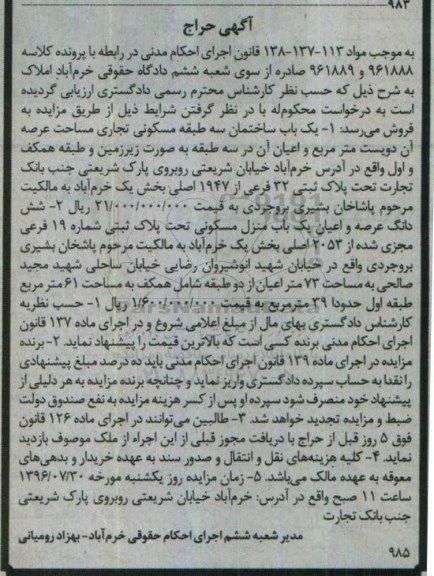 ۹۸۳
آگهی حراج
به موجب مواد ۱۱۳-۱۳۷-۱۳۸ قانون اجرای احکام مدنی در رابطه با پرونده کلاسه
۹۶۱۸۸۸ و ۹۶۱۸۸۹ صادره از سوی شعبه ششم دادگاه حقوقی خرم‌آباد املاک
به شرح ذیل که حسب نظر کارشناس محترم رسمی دادگستری ارزیابی گردیده
است به درخواست محکوم‌له با در نظر گرفتن شرایط ذیل از طریق مزایده به
فروش می‌رسد: ۱- یک باب ساختمان سه طبقه مسکونی تجاری مساحت عرصه
آن دویست متر مربع و اعیان آن در سه طبقه به صورت زیرزمین و طبقه همکف
و اول واقع در آدرس خرم‌آباد خیابان شریعتی روبروی پارک شریعتی جنب بانک
تجارت تحت پلاک ثبتی ۳۲ فرعی از ۱۹۴۷ اصلی بخش یک خرم‌آباد به مالکیت
مرحوم پاشاخان بشیری بروجردی به قیمت ۲۱/۰۰۰/۰۰۰/۰۰۰ ریال ۲- شش
دانگ عرصه و اعیان یک باب منزل مسکونی تحت پلاک ثبتی شماره ۱۹ فرعی
مجزی شده از ۲۰۵۳ اصلی بخش یک خرم‌آباد به مالکیت مرحوم پاشخان بشیری
بروجردی واقع در خیابان شهید انوشیروان رضایی خیابان ساحلی شهید مجید
صالحی به مساحت ۷۳ متر اعیان از دو طبقه شامل همکف به مساحت ۶۱ متر مربع
طبقه اول حدودا ۳۹ مترمربع به قیمت ۱/۶۰۰/۰۰۰/۰۰۰ ریال ۱- حسب نظریه
کارشناس دادگستری بهای مال از مبلغ اعلامی شروع و در اجرای ماده ۱۳۷ قانون
اجرای احکام مدنی برنده کسی است که بالاترین قیمت را پیشنهاد نماید. ۲- برنده
مزایده در اجرای ماده ۱۳۹ قانون اجرای احکام مدنی باید ده درصد مبلغ پیشنهادی
را نقدا به حساب سپرده دادگستری واریز نماید و چنانچه برنده مزایده به هر دلیلی از
پیشنهاد خود منصرف شود سپرده او پس از کسر هزینه مزایده به نفع صندوق دولت
ضبط و مزایده تجدید خواهد شد. ۳- طالبین می‌توانند در اجرای ماده ۱۲۶ قانون
فوق ۵ روز قبل از حراج با دریافت مجوز قبلی از این اجراء از ملک موصوف بازدید
نماید. ۴- کلیه هزینه‌های نقل و انتقال و صدور سند به عهده خریدار و بدهی‌های
معوقه به عهده مالک می‌باشد. ۵- زمان مزایده روز یکشنبه مورخه ۱۳۹۶/۰۷/۳۰
ساعت ۱۱ صبح واقع در آدرس: خرم‌آباد خیابان شریعتی روبروی پارک شریعتی
جنب بانک تجارت
مدیر شعبه ششم اجرای احکام حقوقی خرم‌آباد - بهزاد رومیانی
۹۸۵